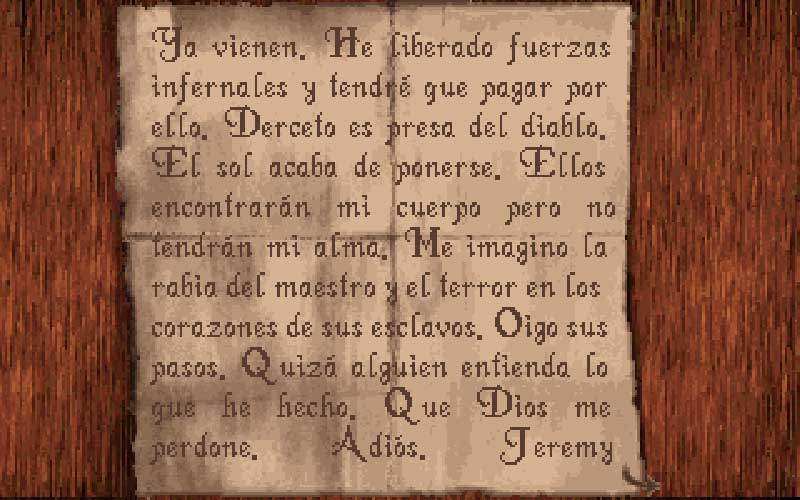 Ya vienen. He liberado fuerzas
infernales y tendré que pagar por
ello. Derceto es presa del diablo.
El sol acaba de ponerse. Ellos
encontrarán mi cuerpo pero no
tendrán mi alma. Me imagino la
rabia del maestro y el terror en los
corazones de sus esclavos. Oigo sus
pasos. Quizá alguien entienda lo
que he hecho. Que Dios me
perdone. Adiós. Jeremy